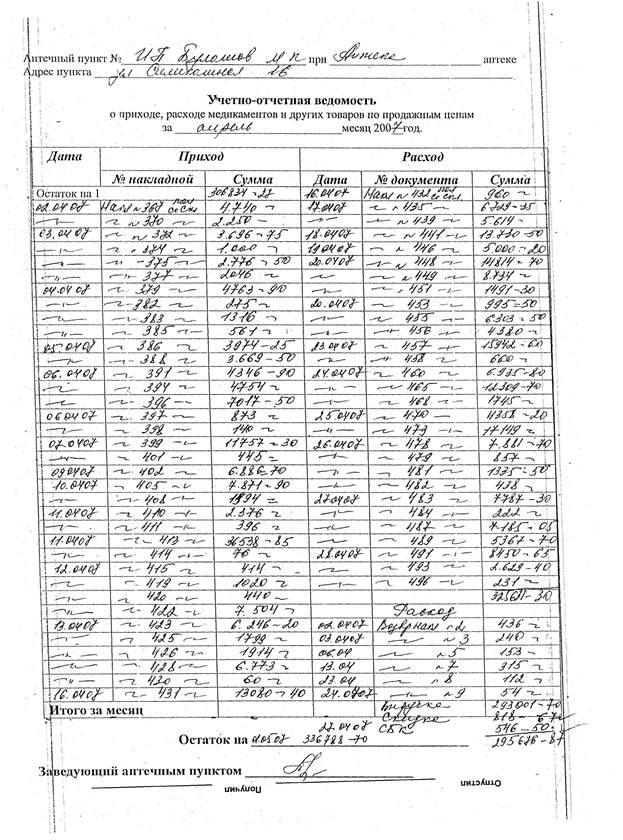 Аптечный пункт № ИП Бурлшов М П при Аптеке аптеке
Адрес пункта ул 16
Учетно-отчетная ведомость
о приходе, расходе медикаментов и других товаров по продажным ценам
за апрель месяц 2007 год.
Дата Приход Расход
№ накладной Сумма Дата № документа Сумма
Остаток на 1 306834=27 16.0407 Накл № 432 960=
02.0407 Накл № 367 4.740= 17.0407 № 435 6729-35
№ 370 2.250- № 439 5614-
03.0407 № 372 3.696=75 18.0407 № 441 13.730-50
№ 374 1.000= 19.0407 № 446 5.000-20
375 2.776=50 20.0407 № 448 14814=70
377 2046= № 449 8734=
04.0407 379 4763=90 451 1491-30
382 275= 20.0407 453 995=50
383 1316= 455 6303=50
385 561= 456 4380=
05.0407 386 3974-25 23.0407 457 15942-60
388 3.669-50 458 660=
06.0407 391 4346-90 24.0407 460 6.935-80
394 4754= 465 12309-70
396 7017-50 468 1745=
06.0407 397 873= 25.0407 470 4358-20
398 140= 473 17149=
07.0407 399 11757=30 26.0407 478 7.881-70
401 445= 479 857=
09.0407 402 6.886-70 481 1335-50
10.0407 405 7.871=90 482 438=
408 1894= 27.0407 483 7787-30
11.0407 410 2.376= 484 222=
411 396= 487 7.185-05
11.0407 413 36538-85 489 5367=70
414 76= 28.0407 491 8450-65
12.0407 415 414= 493 2.629-40
419 1020= 496 231=
420 440= 325671-30
422 7.504= Расход
13.0407 423 6.246-20 02.0407 Возврнакл №2 436=
425 1799= 03.0407 №3 240=
426 1914= 06.04 №5 153=
428 6.773= 13.04 №7 315=
430 60= 23.04 №8 112=
16.0407 431 13080=40 24.0407 №9 54=
Итого за месяц Выручка 293001-70
Скидка 818-67
27.0407 СБК 546...50
Остаток на 020507 336788-70 295676-87
Заведующий аптечным пунктом
Получил Отпустил